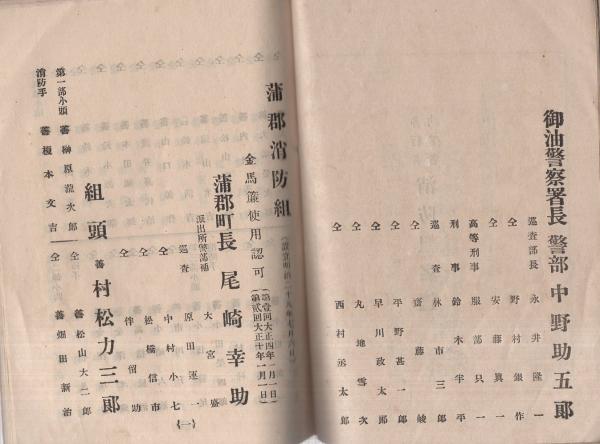 御油警察署長 警部 中野助五郞
巡査部長 永井隆一
仝 野村銀作
仝 安藤眞一
高等刑事 服部只一
刑事 鈴木半平
巡査 林市三郞
仝 齋藤崚
仝 平野甚一郞
仝 早川政太郞
仝 丸地雪次
仝 西村丞太郞
蒲郡消防組
金馬簾使用認可
(第壹回大正四年一月一日)
(第貳回大正十年一月一日)
蒲郡町長 尾崎幸助
派出所警部補 大宮盛
巡査 原田運一
仝 中村小七
仝 松橋信市
仝 伴留助
(一)
組頭 善 村松力三郞
第一部小頭 善 榊原瀧次郞
仝 善 松山大二郞
消防手 善 榎本文吉
仝 善 畑田新治